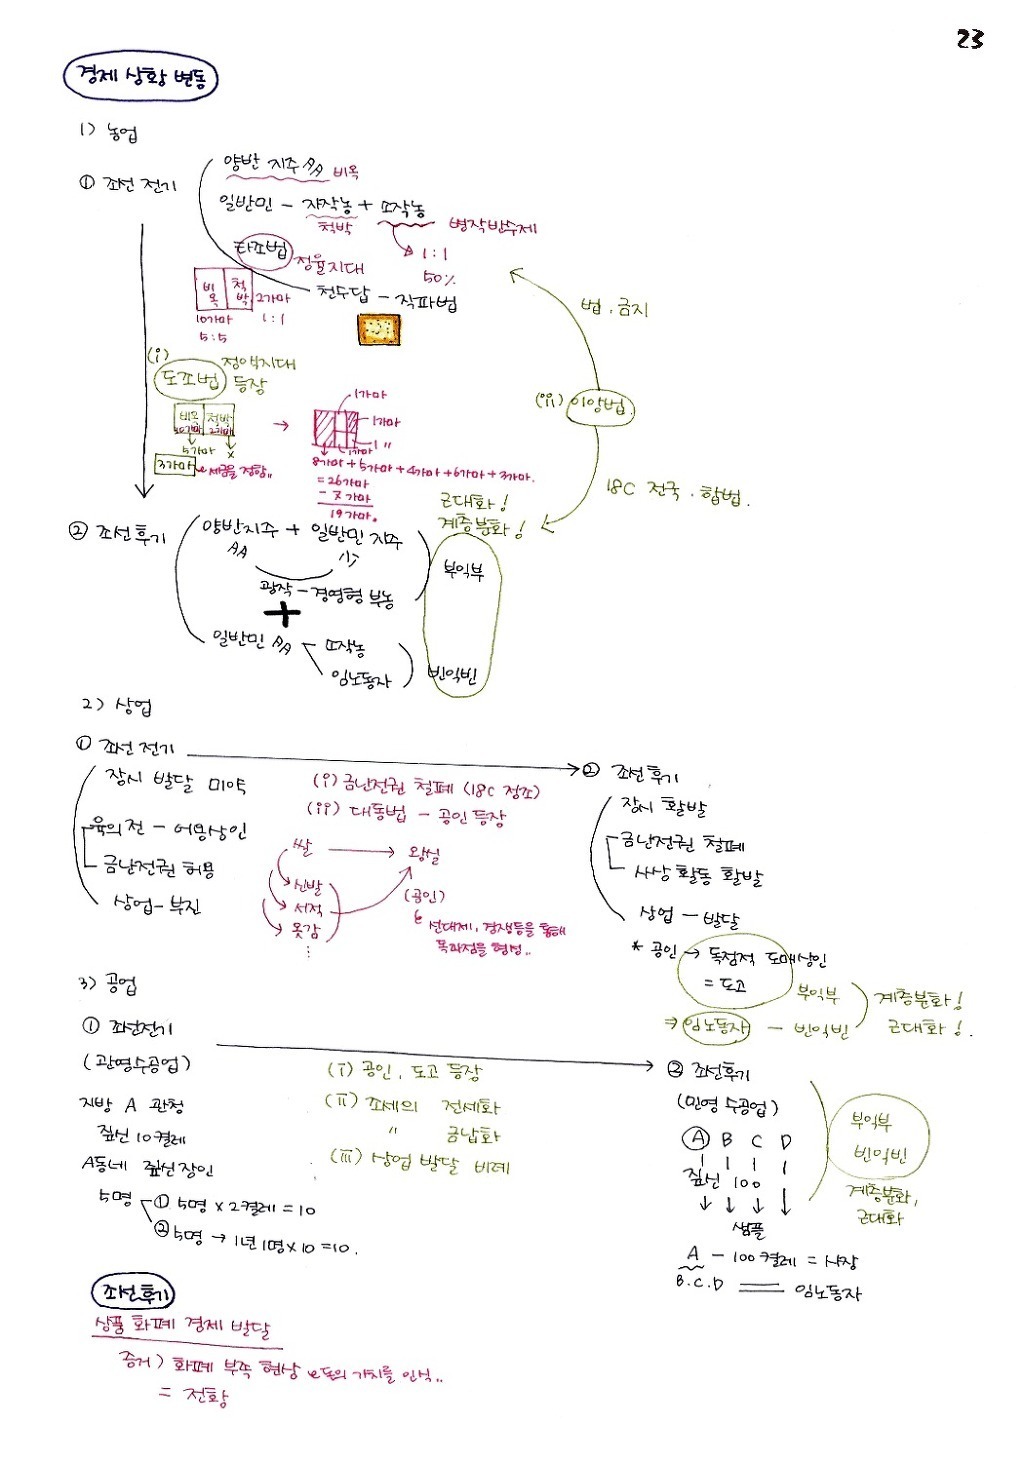 23
경제 상황 변동
1) 농업
① 조선 전기
양반 지주 AA 비옥
일반민 - 자작농 + 소작농
척박
병작반수제
타조법
정율지대
1:1
50%
비옥 척박 2가마
10가마 1:1
5:5
천수답 - 직파법
법. 금지
(i)
도조법
정액지대
등장
비옥 척박
10가마 2가마
5가마 x
3가마 세금을 정함..
→
1가마
1가마
1 〃
1가마
8가마 + 5가마 + 4가마 + 6가마 + 3가마.
= 26가마
- 7가마
19가마.
(iii) 이앙법.
18C 전국. 합법.
근대화!
계층분화!
② 조선후기
양반지주 + 일반민 지주
AA 小
광작 - 경영형 부농
부익부
+
일반민 AA
소작농
임노동자
빈익빈
2) 상업
① 조선 전기
장시 발달 미약
육의전 - 어용상인
금난전권 허용
상업 - 부진
(i) 금난전권 철폐 (18C 정조)
(ii) 대동법 - 공인 등장
쌀 → 왕실
신발
서적
옷감
⋮
(공인)
선대제, 경쟁등을 통해
독과점을 형성..
② 조선후기
장시 활발
금난전권 철폐
사상 활동 활발
상업 - 발달
* 공인 → 독점적 도매상인
= 도고
부익부
⇒ 임노동자 - 빈익빈
계층분화!
근대화!.
3) 공업
① 조선전기
(관영수공업)
지방 A 관청
짚신 10켤레
A동네 짚신장인
5명 ① 5명 x 2켤레 = 10
② 5명 → 1년 1명 x 10 = 10.
(i) 공인, 도고 등장
(ii) 조세의 전세화
〃 금납화
(iii) 상업 발달 비례
② 조선후기
(민영 수공업)
A B C D
짚신 100
샘플
A - 100켤레 = 사장
B.C.D 임노동자
부익부
빈익빈
계층분화,
근대화
조선후기
상품 화폐 경제 발달
증거) 화폐 부족 현상 돈의 가치를 인식..
= 전황